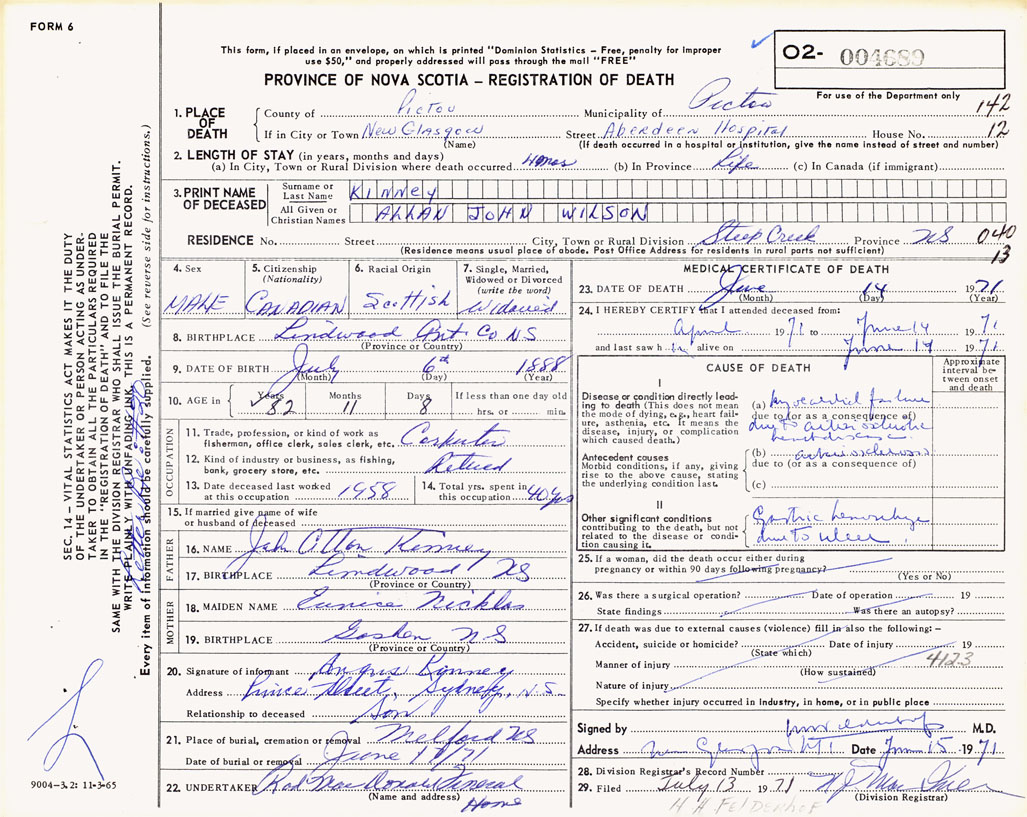 FORM 6
This form, if placed in an envelope, on which is printed "Dominion Statistics – Free, penalty for improper
use $50," and properly addressed will pass through the mail "FREE"
O2- 004689
For use of the Department only
PROVINCE OF NOVA SCOTIA – REGISTRATION OF DEATH
1. PLACE OF DEATH
County of Pictou Municipality of Pictou 142
If in City or Town New Glasgow Street Aberdeen Hospital House No. 12
(Name) (If death occurred in a hospital or institution, give the name instead of street and number)
2. LENGTH OF STAY (in years, months and days)
(a) In City, Town or Rural Division where death occurred (b) In Province Life (c) In Canada (if immigrant)
3. PRINT NAME OF DECEASED
Surname or Last Name KINNEY
All Given or Christian Names ALLAN JOHN WILSON
RESIDENCE No. Street City, Town or Rural Division Steep Creek Province NS 040
(Residence means usual place of abode. Post Office Address for residents in rural parts not sufficient) 13
4. Sex MALE
5. Citizenship (Nationality) CANADIAN
6. Racial Origin Scottish
7. Single, Married, Widowed or Divorced (write the word) Widowed
8. BIRTHPLACE Lindwood Ant Co N.S
(Province or Country)
9. DATE OF BIRTH July 6th 1888
(Month) (Day) (Year)
10. AGE in Years 82 Months 11 Days 8 If less than one day old hrs. or min.
OCCUPATION
11. Trade, profession, or kind of work as fisherman, office clerk, sales clerk, etc. Carpenter
12. Kind of industry or business, as fishing, bank, grocery store, etc. Retired
13. Date deceased last worked at this occupation 1958
14. Total yrs. spent in this occupation 40 yrs
15. If married give name of wife or husband of deceased
FATHER
16. NAME John Kinney
17. BIRTHPLACE Lindwood NS
(Province or Country)
MOTHER
18. MAIDEN NAME Eunice Nickles
19. BIRTHPLACE Goshen N S
(Province or Country)
20. Signature of informant Angus Kinney
Address Prince Street, Sydney, N.S.
Relationship to deceased Son
21. Place of burial, cremation or removal Melford NS
Date of burial or removal June 17/71
22. UNDERTAKER Rod MacDonald Funeral
(Name and address) Home
MEDICAL CERTIFICATE OF DEATH
23. DATE OF DEATH June 14 1971
(Month) (Day) (Year)
24. I HEREBY CERTIFY that I attended deceased from:
April 1971 to June 14 1971
and last saw him alive on June 14 1971
CAUSE OF DEATH
Approximate interval between onset and death
I
Disease or condition directly leading to death (This does not mean the mode of dying, e.g., heart failure, asthenia, etc. It means the disease, injury, or complication which caused death.)
(a) myocardial failure
due to (or as a consequence of)
due to arteriosclerotic
heart disease
Antecedent causes
Morbid conditions, if any, giving rise to the above cause, stating the underlying condition last.
(b) arteriosclerosis
due to (or as a consequence of)
(c)
II
Other significant conditions contributing to the death, but not related to the disease or condition causing it.
Gastric hemorrhage
due to ulcer
25. If a woman, did the death occur either during
pregnancy or within 90 days following pregnancy?
(Yes or No)
26. Was there a surgical operation? Date of operation 19
State findings Was there an autopsy?
27. If death was due to external causes (violence) fill in also the following:–
Accident, suicide or homicide? Date of injury 19
(State which)
4123
Manner of injury
(How sustained)
Nature of injury
Specify whether injury occurred in industry, in home, or in public place
Signed by M.D.
Address New Glasgow Date June 15 1971
28. Division Registrar's Record Number
29. Filed July 13 1971
(Division Registrar)
H H FELDENHOF
SEC. 14 – VITAL STATISTICS ACT MAKES IT THE DUTY
OF THE UNDERTAKER OR PERSON ACTING AS UNDER-
TAKER TO OBTAIN ALL THE PARTICULARS REQUIRED
IN THE "REGISTRATION OF DEATH" AND TO FILE THE
SAME WITH THE DIVISION REGISTRAR WHO SHALL ISSUE THE BURIAL PERMIT.
WRITE PLAINLY WITH UNFADING INK. THIS IS A PERMANENT RECORD.
Every item of information should be carefully supplied. (See reverse side for instructions.)
9004-3.2: 11-3-65